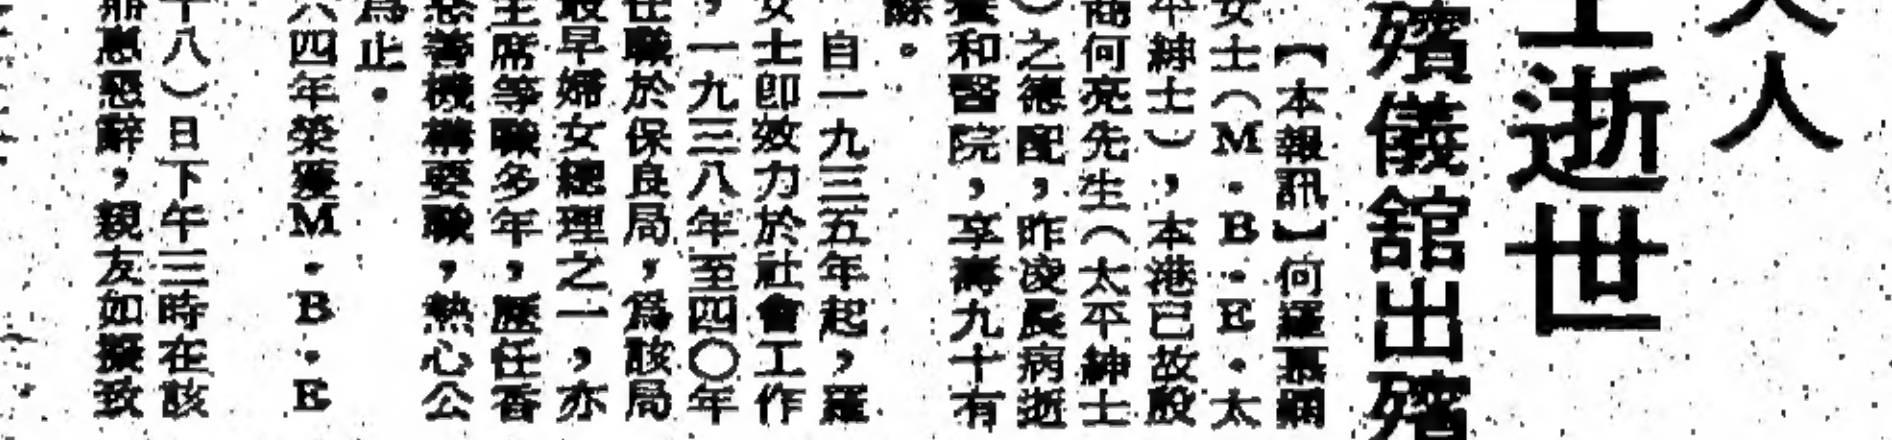 人
逝世
殯儀舘出殯
【本報訊】何羅慕嫻
女士（M．B．E．太
平紳士），本港已故殷
商何亮先生（太平紳士
）之德配，昨凌晨病逝
養和醫院，享壽九十有
餘。
自一九三五年起，羅
女士卽效力於社會工作
，一九三八年至四〇年
任職於保良局，爲該局
最早婦女總理之一，亦
主席等職多年，歷任香
慈善機構要職，熱心公
爲止。
六四年榮獲M．B．E
十八）日下午三時在該
懇辭，親友如擬致